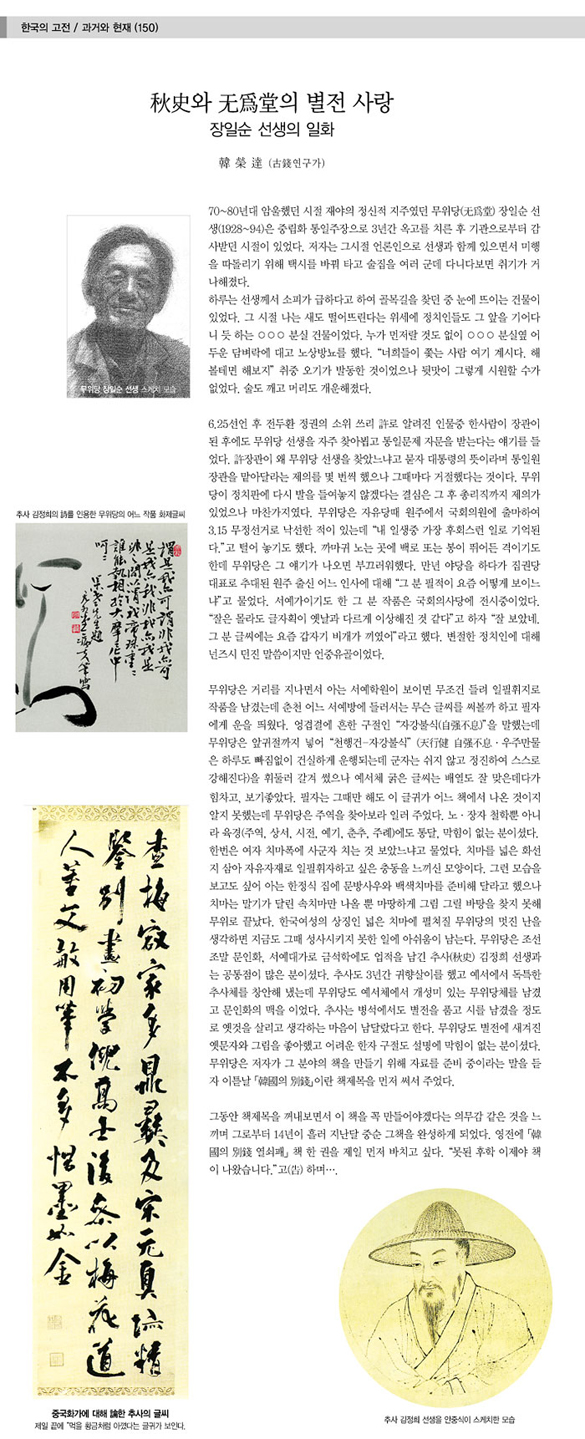 한국의 고전 / 과거와 현재 (150)
秋史와 无爲堂의 별전 사랑
장일순 선생의 일화
韓 榮 達 (古錢연구가)
70~80년대 암울했던 시절 재야의 정신적 지주였던 무위당(无爲堂) 장일순 선
생(1928~94)은 중립화 통일주장으로 3년간 옥고를 치른 후 기관으로부터 감
사받던 시절이 있었다. 저자는 그시절 언론인으로 선생과 함께 있으면서 미행
을 따돌리기 위해 택시를 바꿔 타고 술집을 여러 군데 다니다보면 취기가 거
나해졌다.
하루는 선생께서 소피가 급하다고 하여 골목길을 찾던 중 눈에 뜨이는 건물이
있었다. 그 시절 나는 새도 떨어뜨린다는 위세에 정치인들도 그 앞을 기어다
니 듯 하는 ○○○ 분실 건물이었다. 누가 먼저랄 것도 없이 ○○○ 분실옆 어
두운 담벼락에 대고 노상방뇨를 했다. “너희들이 쫓는 사람 여기 계시다. 해
볼테면 해보지” 취중 오기가 발동한 것이었으나 뒷맛이 그렇게 시원할 수가
없었다. 술도 깨고 머리도 개운해졌다.
무위당 장일순 선생 스케치 모습
6.25선언 후 전두환 정권의 소위 쓰리 許로 알려진 인물중 한사람이 장관이
된 후에도 무위당 선생을 자주 찾아뵙고 통일문제 자문을 받는다는 얘기를 들
었다. 許장관이 왜 무위당 선생을 찾았느냐고 묻자 대통령의 뜻이라며 통일원
장관을 맡아달라는 제의를 몇 번씩 했으나 그때마다 거절했다는 것이다. 무위
당이 정치판에 다시 발을 들여놓지 않겠다는 결심은 그 후 총리직까지 제의가
있었으나 마찬가지였다. 무위당은 자유당때 원주에서 국회의원에 출마하여
3.15 무정선거로 낙선한 적이 있는데 “내 일생중 가장 후회스런 일로 기억된
다.”고 털어 놓기도 했다. 까마귀 노는 곳에 백로 또는 봉이 뛰어든 격이기도
한데 무위당은 그 얘기가 나오면 부끄러워했다. 만년 야당을 하다가 집권당
대표로 추대된 원주 출신 어느 인사에 대해 “그 분 필적이 요즘 어떻게 보이느
냐”고 물었다. 서예가이기도 한 그 분 작품은 국회의사당에 전시중이었다.
“잘은 몰라도 글자획이 옛날과 다르게 이상해진 것 같다”고 하자 “잘 보았네.
그 분 글씨에는 요즘 갑자기 비개가 끼었어”라고 했다. 변절한 정치인에 대해
넌즈시 던진 말씀이지만 언중유골이었다.
추사 김정희의 詩를 인용한 무위당의 어느 작품 화제글씨
무위당은 거리를 지나면서 아는 서예학원이 보이면 무조건 들려 일필휘지로
작품을 남겼는데 춘천 어느 서예방에 들러서는 무슨 글씨를 써볼까 하고 필자
에게 운을 띄웠다. 엉겁결에 흔한 구절인 “자강불식(自强不息)”을 말했는데
무위당은 앞귀절까지 넣어 “천행건-자강불식” (天行健 自强不息·우주만물
은 하루도 빠짐없이 건실하게 운행되는데 군자는 쉬지 않고 정진하여 스스로
강해진다)을 휘둘러 갈겨 썼으나 예서체 굵은 글씨는 배열도 잘 맞은데다가
힘차고, 보기좋았다. 필자는 그때만 해도 이 글귀가 어느 책에서 나온 것이지
알지 못했는데 무위당은 주역을 찾아보라 일러 주었다. 노·장자 철학뿐 아니
라 육경(주역, 상서, 시전, 예기, 춘추, 주례)에도 통달, 막힘이 없는 분이셨다.
한번은 여자 치마폭에 사군자 치는 것 보았느냐고 물었다. 치마를 넓은 화선
지 삼아 자유자재로 일필휘자하고 싶은 충동을 느끼신 모양이다. 그런 모습을
보고도 싶어 아는 한정식 집에 문방사우와 백색치마를 준비해 달라고 했으나
치마는 말기가 달린 속치마만 나올 뿐 마땅하게 그림 그릴 바탕을 찾지 못해
무위로 끝났다. 한국여성의 상징인 넓은 치마에 펼쳐질 무위당의 멋진 난을
생각하면 지금도 그때 성사시키지 못한 일에 아쉬움이 남는다. 무위당은 조선
조말 문인화, 서예대가로 금석학에도 업적을 남긴 추사(秋史) 김정희 선생과
는 공통점이 많은 분이셨다. 추사도 3년간 귀향살이를 했고 예서에서 독특한
추사체를 창안해 냈는데 무위당도 예서체에서 개성미 있는 무위당체를 남겼
고 문인화의 맥을 이었다. 추사는 병석에서도 별전을 품고 시를 남겼을 정도
로 옛것을 살리고 생각하는 마음이 남달랐다고 한다. 무위당도 별전에 새겨진
옛문자와 그림을 좋아했고 어려운 한자 구절도 설명에 막힘이 없는 분이셨다.
무위당은 저자가 그 분야의 책을 만들기 위해 자료를 준비 중이라는 말을 듣
자 이튿날 「韓國의 別錢」이란 책제목을 먼저 써서 주었다.
그동안 책제목을 꺼내보면서 이 책을 꼭 만들어야겠다는 의무감 같은 것을 느
끼며 그로부터 14년이 흘러 지난달 중순 그책을 완성하게 되었다. 영전에 「韓
國의 別錢 열쇠패」 책 한 권을 제일 먼저 바치고 싶다. “못된 후학 이제야 책
이 나왔습니다.”고(告) 하며….
查梅寂家多鼎彝及宋元真跡精
鑒別畫初學倪高士後參以梅花道
人善文敏用筆不多惜墨如金
중국화가에 대해 論한 추사의 글씨
제일 끝에 “먹을 황금처럼 아꼈다는 글귀가 보인다.
추사 김정희 선생을 안중식이 스케치한 모습